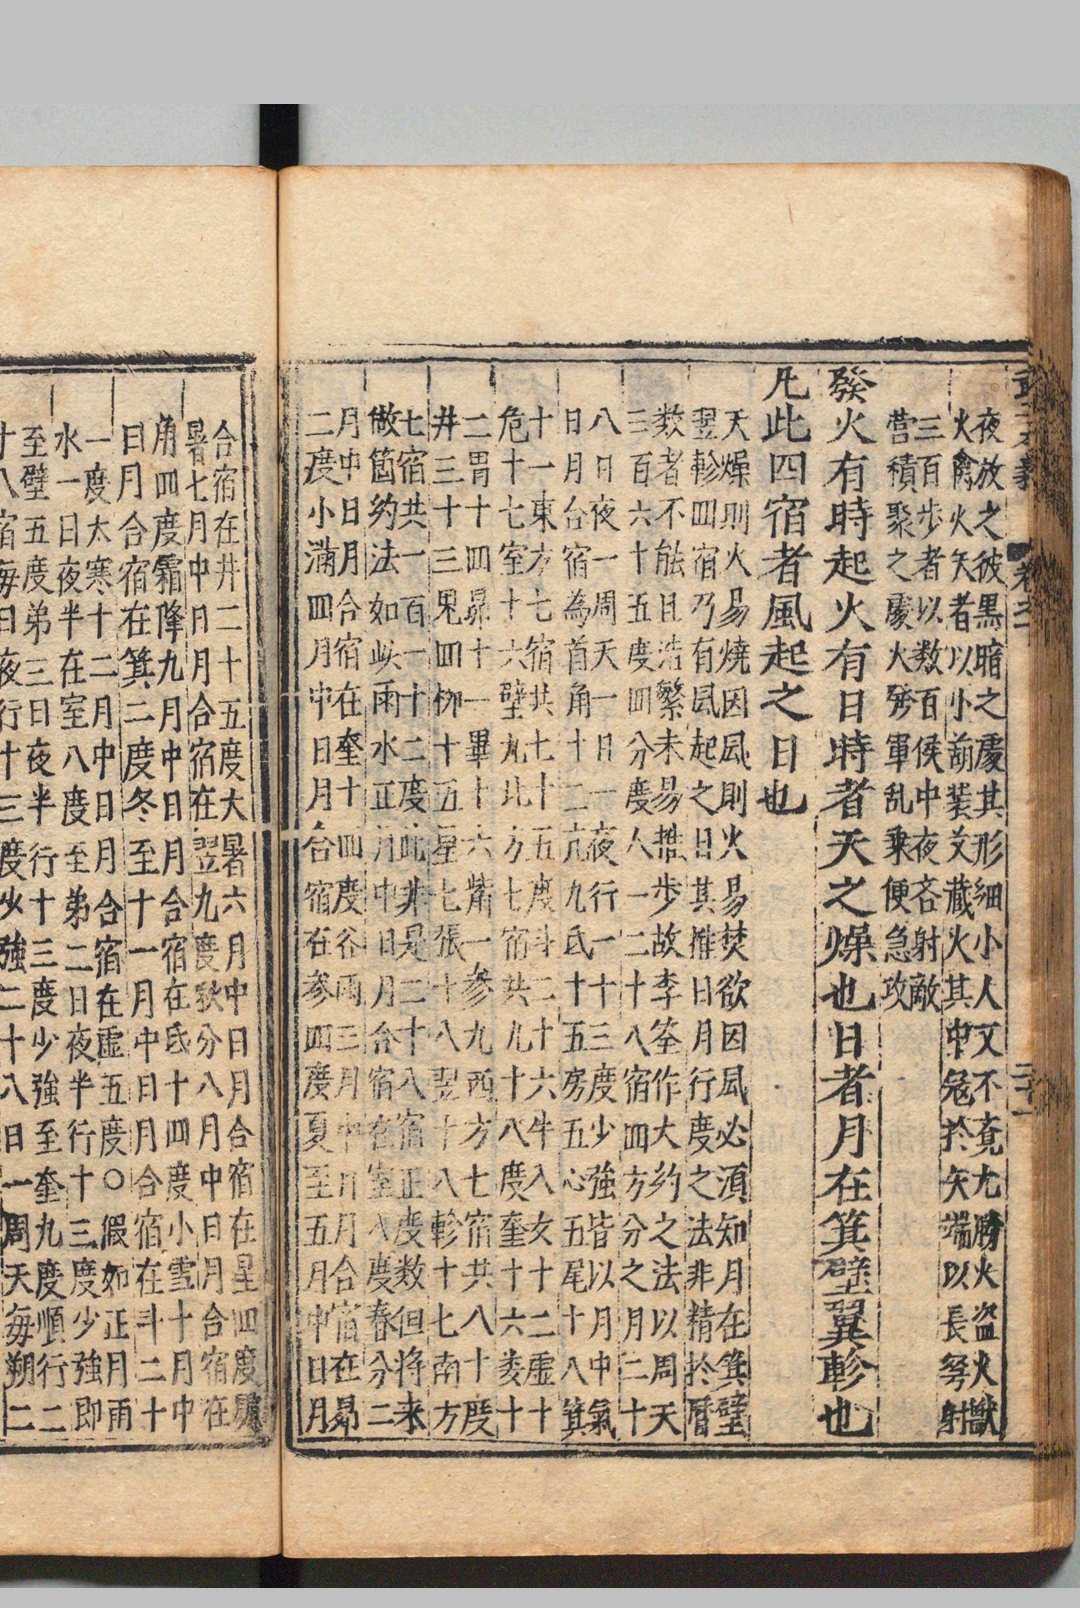 夜放之彼黑暗之處其形細小人又不竟尤勝火盜火獸
火禽火矢者以小葫蘆裝又藏火其中冠於矢端以長弩射
三百步者以数百候中夜吝射敵
营積聚之處火發軍乱乘便急攻
發火有時起火有日時者天之燥也日者月在箕壁翼軫也
凡此四宿者風起之日也
天燥則火易燒因風則火易焚欲因風必須知月在箕壁
翌軫四宿乃有風起之日其推日月行度之法非精於曆
数者不能且浩繁未易推步故李筌作大約之法以周天
三百六十五度四分度人一二十八宿四方分之月二十
八日夜一周天一日一夜行一十三度少強皆以月中氣
日月合宿為首角十二亢九氐十五房五心五尾十八箕
十一東方七宿共七十五度斗二十六牛八女十二虛十
危十七室十六壁九北方七宿共九十八度奎十六婁十
二胃十四昴十一畢十六觜一參九西方七宿共八十度
井三十三鬼四柳十五星七張十八翌十八軫十七南方
七宿共一百一十二度此非是二十八宿正度数但将來
做箇約法如此雨水正月中日月合宿在室八度春分二
月中日月合宿在奎十四度谷雨三月中日月合宿在昴
二度小滿四月中日月合宿在参四度夏至五月中日月
合宿在井二十五度大暑六月中日月合宿在星四度處
暑七月中月月合宿在翌九度秋分八月中日月合宿在
角四度霜降九月中日月合宿在氐十四度小雪十月中
日月合宿在箕二度冬至十一月中日月合宿在斗二十
一度大寒十二月中日月合宿在虛五度○假如正月雨
水一日夜半在室八度至弟二日夜半行十三度少強即
至壁五度弟三日夜半行十三度少強至奎九度順行二
十八宿每日夜行十三度少強二十八日一周天每朔二